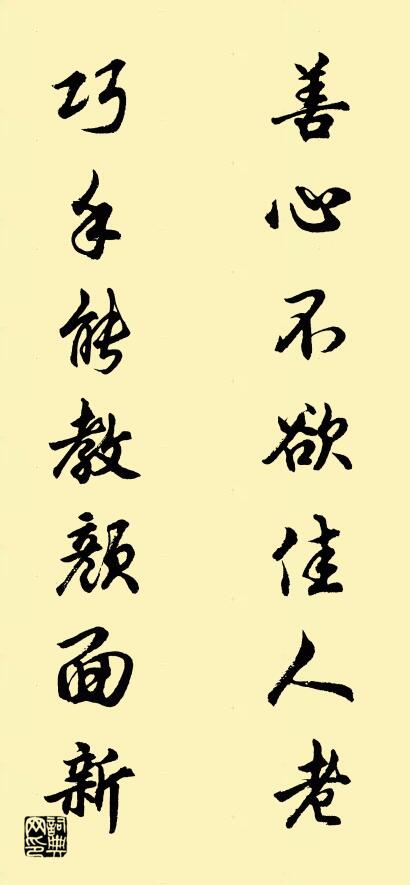 善心不欲佳人老
巧手能教颜面新
詞典
网印